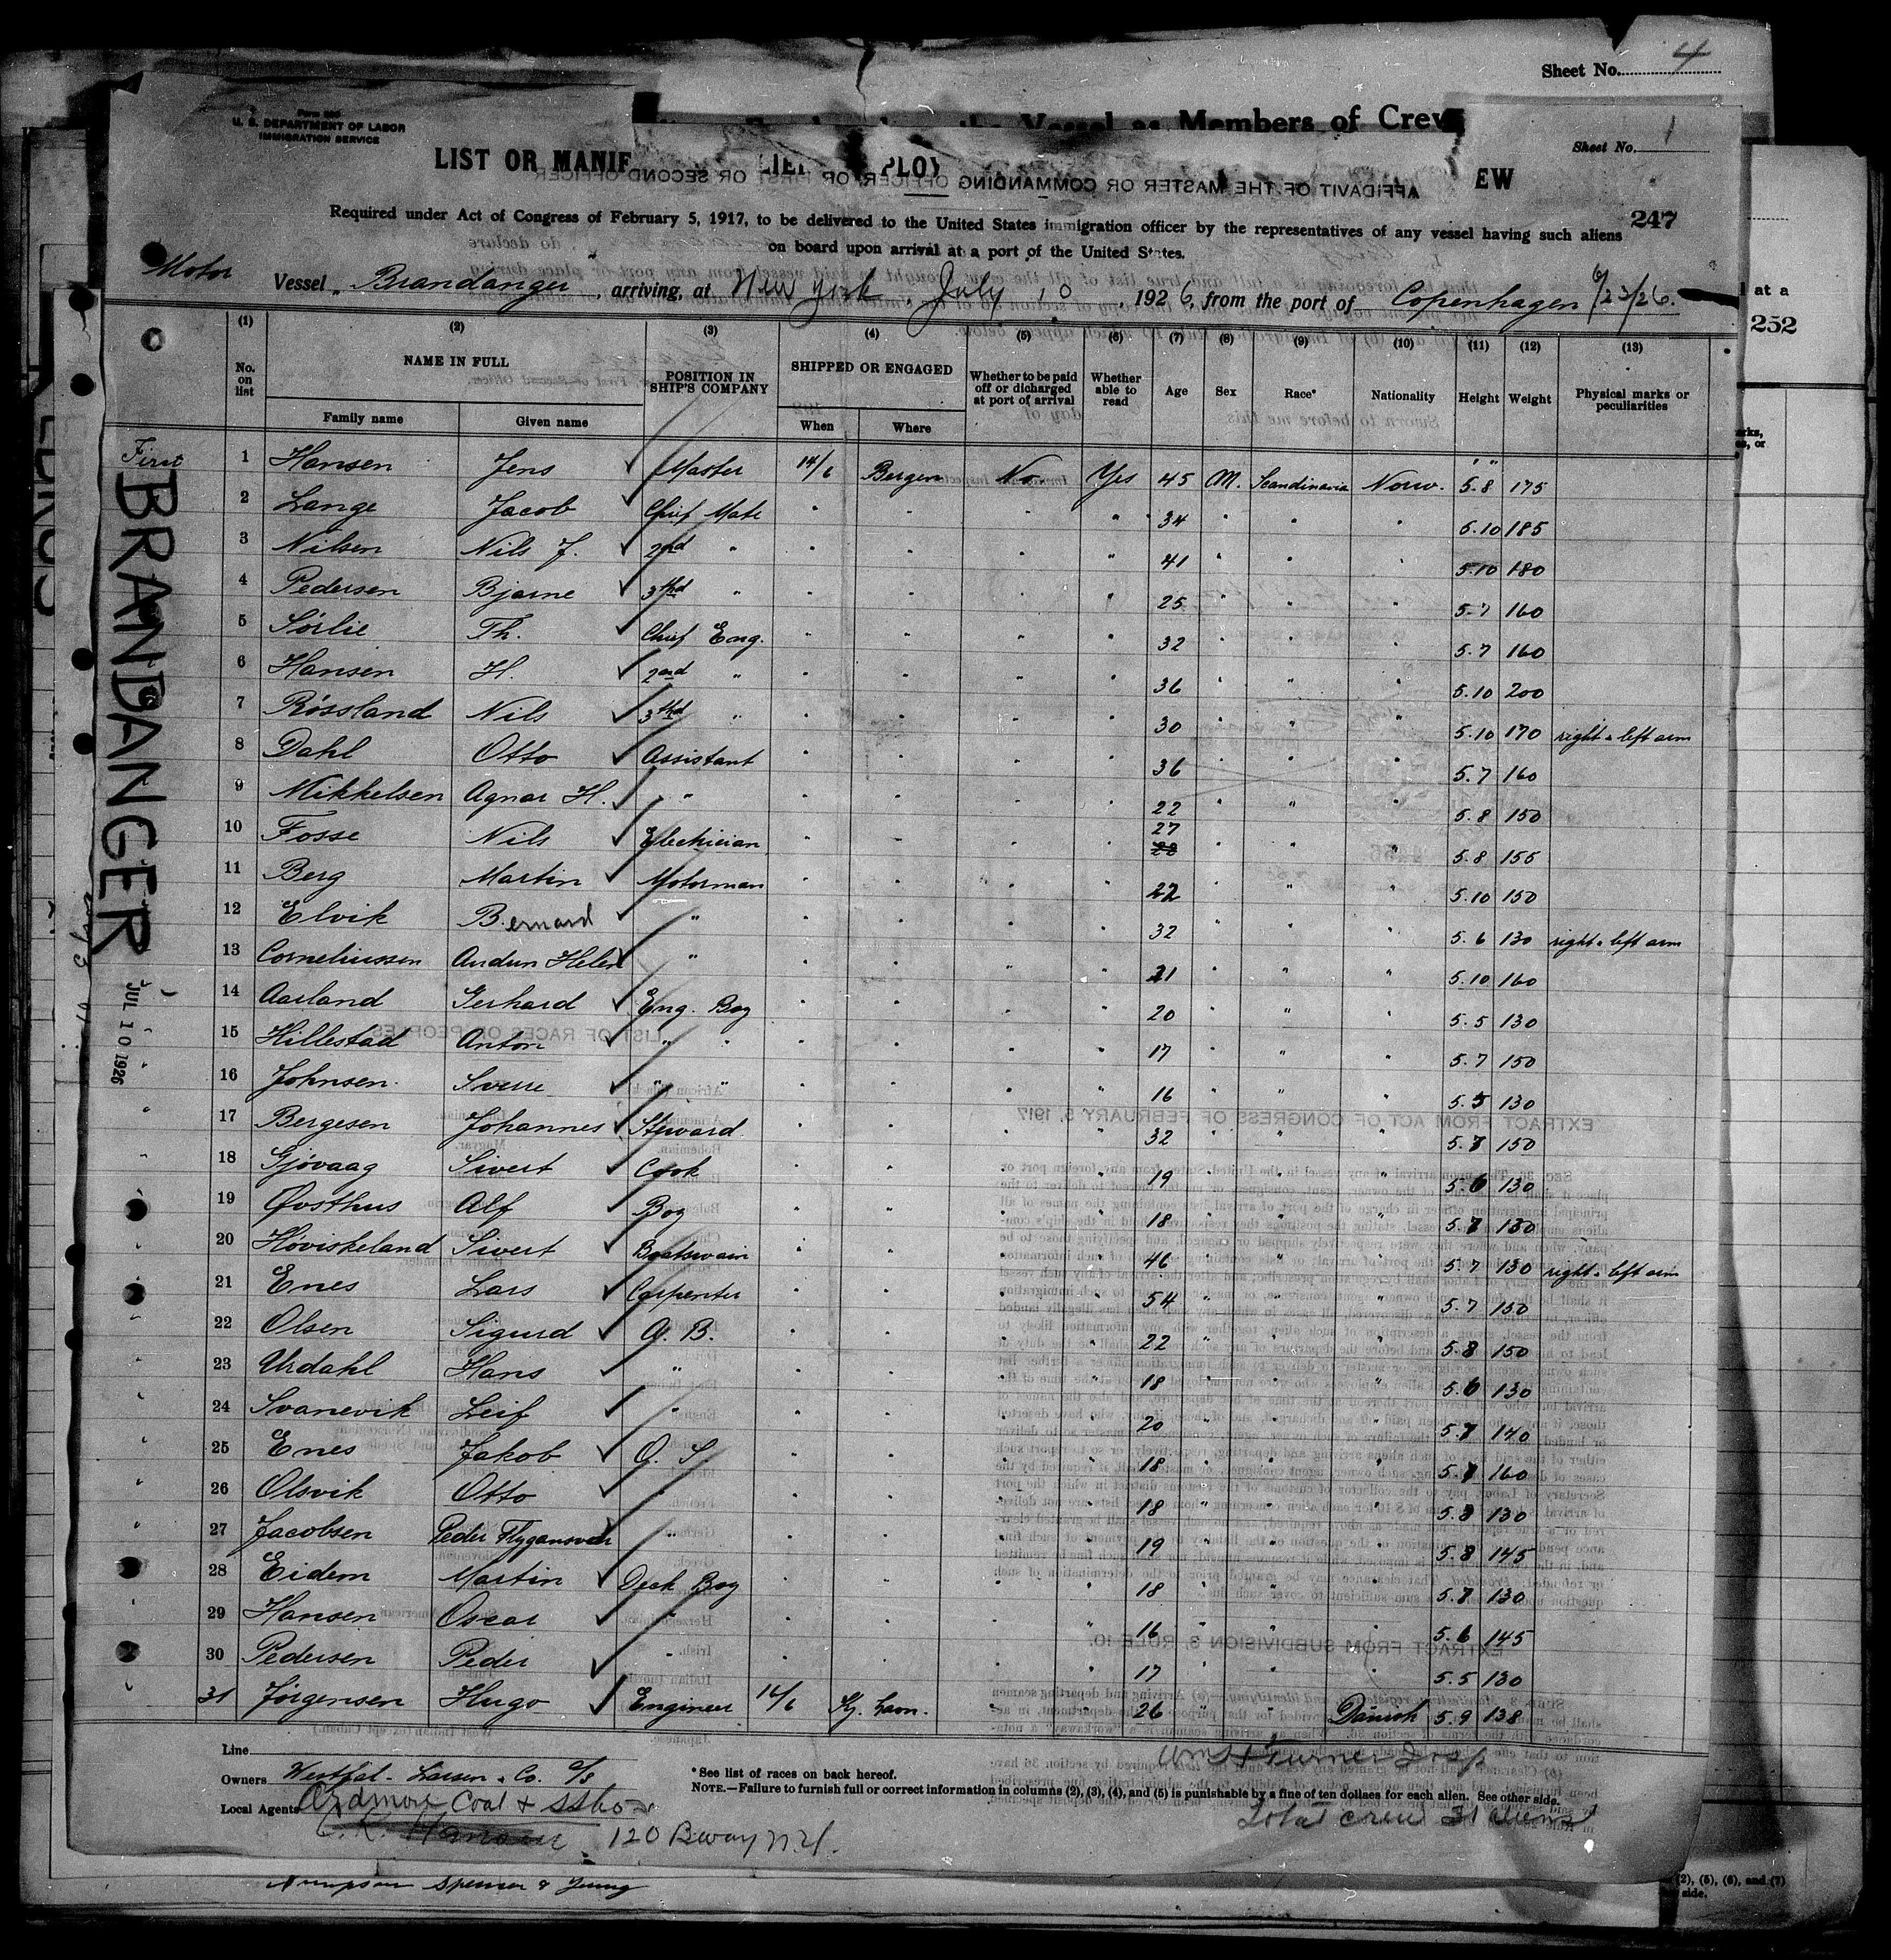 Sheet No. 4
the Vessel as Members of Crew
Form 689
U. S. DEPARTMENT OF LABOR
IMMIGRATION SERVICE
Sheet No. 1
LIST OR MANIF LIEN PLOY EW
AFFIDAVIT OF THE MASTER OR COMMANDING OFFICER, OR FIRST OR SECOND OFFICER
247
Required under Act of Congress of February 5, 1917, to be delivered to the United States immigration officer by the representatives of any vessel having such aliens
on board upon arrival at a port of the United States.
Motor Vessel Brandanger, arriving at New York, July 10, 1926, from the port of Copenhagen 6/23/26.
at a
252
(1) (2) (3) (4) (5) (6) (7) (8) (9) (10) (11) (12) (13)
No. on list NAME IN FULL POSITION IN SHIP'S COMPANY SHIPPED OR ENGAGED Whether to be paid off or dicharged at port of arrival Whether able to read Age Sex Race* Nationality Height Weight Physical marks or peculiarities
Family name Given name When Where
First
BRANDANGER
JUL 10 1926
1 Hansen Jens Master 14/6 Bergen No. Yes 45 M. Scandinavia Norw. 5.8 175
2 Lange Jacob Chief Mate " " " " 34 " " " 6.10 185
3 Nilsen Nils J. 2nd " " " " " 41 " " " 5.10 180
4 Pedersen Bjarne 3thd " " " " " 25 " " " 5.7 160
5 Sørlie Th. Chief Eng. " " " " 32 " " " 5.7 160
6 Hansen H. 2nd " " " " " 36 " " " 5.10 200
7 Røssland Nils 3thd " " " " " 30 " " " 5.10 170 right & left arm
8 Dahl Otto Assistant " " " " 36 " " " 5.7 160
9 Mikkelsen Agnar H. " " " " " 22 " " " 5.8 150
10 Fosse Nils Electrician " " " " 27 28 " " " 5.8 155
11 Berg Martin Motorman " " " " 22 " " " 5.10 150
12 Elvik Bernard " " " " " 32 " " " 5.6 130 right & left arm
13 Corneliussen Audun Helen " " " " " 21 " " " 5.10 160
14 Aarland Gerhard Eng. Boy " " " " 20 " " " 5.5 130
15 Hillestad Anton " " " " " " 17 " " " 5.7 150
16 Johnsen Sverre " " " " " " 16 " " " 5.5 130
17 Bergesen Johannes Steward " " " " 32 " " " 5.7 150
18 Gjøvaag Sivert Cook " " " " 19 " " " 5.6 130
19 Øvsthus Alf Boy " " " " 18 " " " 5.7 130
20 Høviskeland Sivert Boatswain " " " " 46 " " " 5.7 130 right & left arm
21 Enes Lars Carpenter " " " " 54 " " " 5.7 150
22 Olsen Sigurd A. B. " " " " 22 " " " 5.8 150
23 Urdahl Hans " " " " " 18 " " " 5.6 130
24 Svanevik Leif " " " " " 20 " " " 5.7 140
25 Enes Jakob O. S " " " " 18 " " " 5.7 160
26 Olsvik Otto " " " " " 18 " " " 5.8 130
27 Jacobsen Peder " " " " " 19 " " " 5.8 145
28 Eidem Martin Deck Boy " " " " 18 " " " 5.7 130
29 Hansen Oscar " " " " " 16 " " " 5.6 145
30 Pedersen Peder " " " " " 17 " " " 5.5 130
31 Jørgensen Hugo Engineer 14/6 " " 26 " " Danish 5.9 138
LIST OF RACES OR PEOPLES
EXTRACT FROM ACT OF CONGRESS OF FEBRUARY 5, 1917
EXTRACT FROM SUBDIVISION 3, RULE 10.
Line
Owners Westfal-Larsen & Co. A/S
Local Agents Ardmore Coal & SS Co
C. K. Hansen 120 Bway N.Y.
*See list of races on back hereof.
NOTE.—Failure to furnish full or correct information in columns (2), (3), (4), and (5) is punishable by a fine of ten dollaes for each alien. See other side.
Wm J Turner Insp
Total crew 31 aliens
Spencer & Young
(2), (5), (6), and (7)
side.